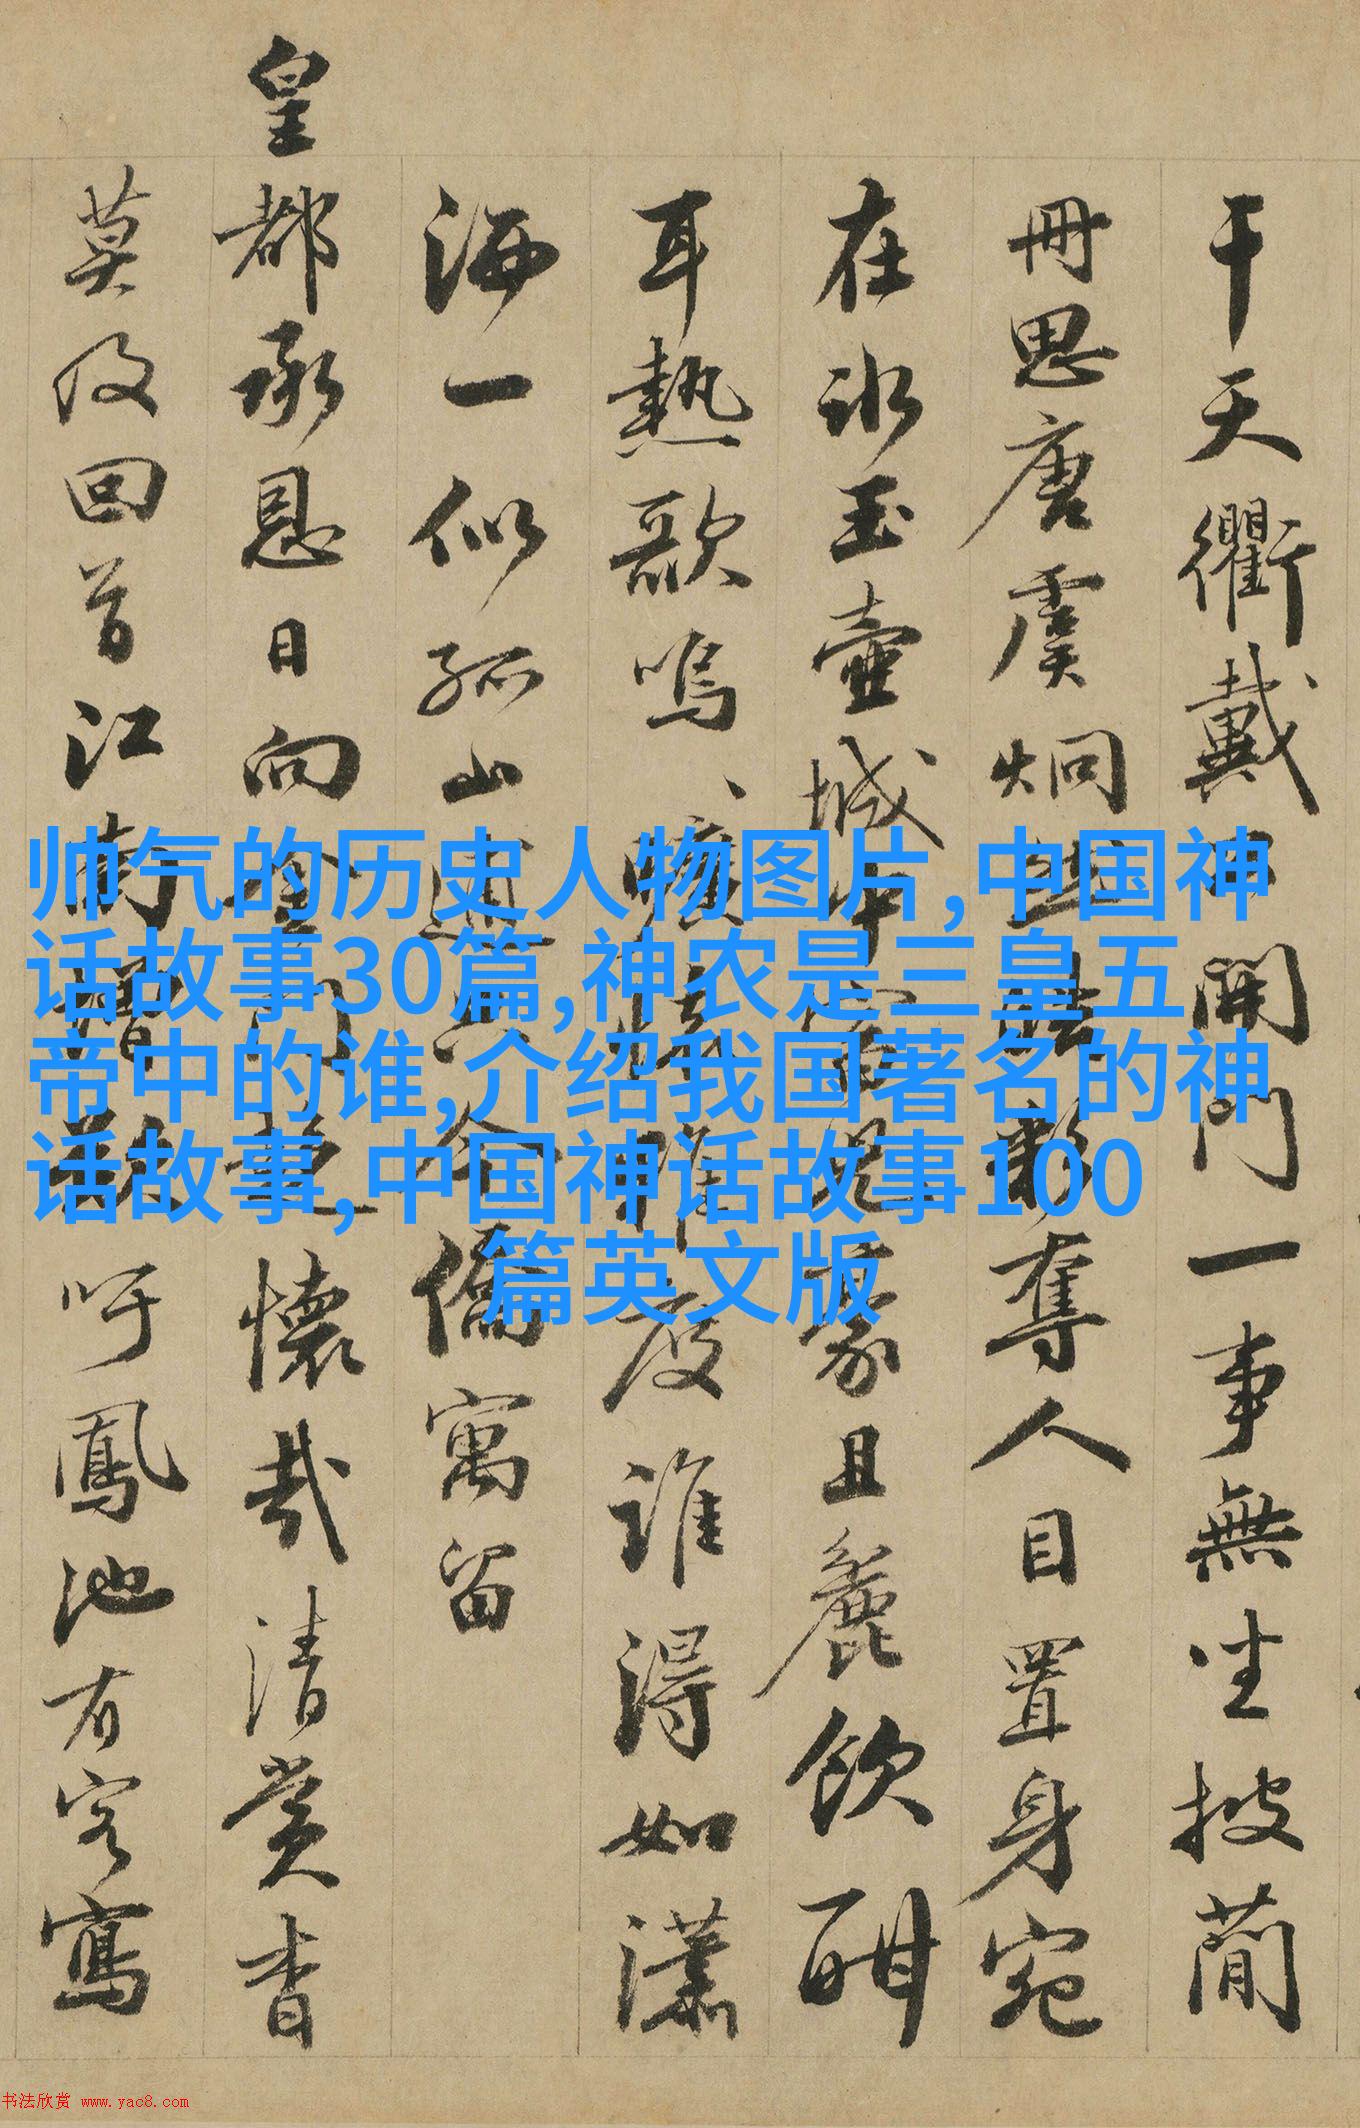 干天衢戴
開門一事無坐披簡
冊思唐虞炯
奪人目置身宛
在冰玉壺城中
豪且麄飲酣
耳熱歌鳴
度誰得如瀟
洒一似孤山
僑寓留
皇都承恩日向
懷哉清賞書
莫及回首江南
吁鳳池有客寫
帅气的历史人物图片,中国神
话故事30篇,神农是三皇五
帝中的谁,介绍我国著名的神
话故事,中国神话故事100
篇英文版
书法欣赏 www.yac8.com